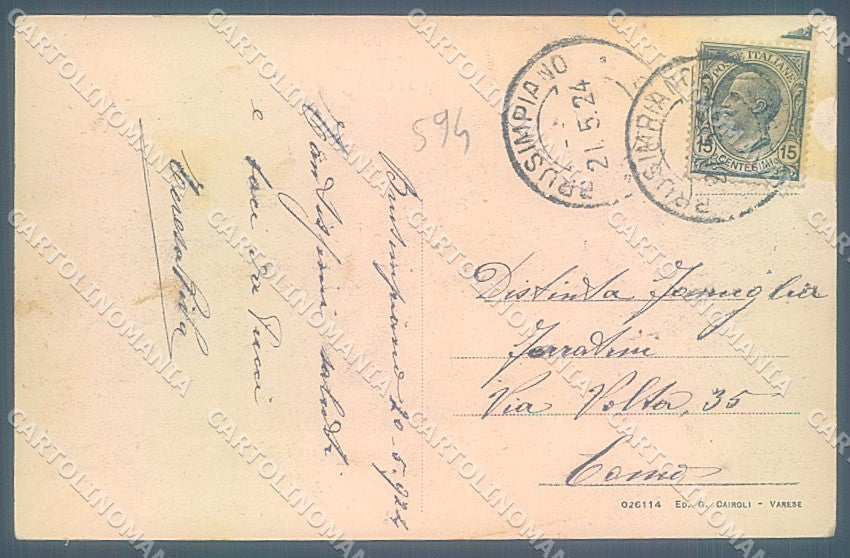 594
BRUSIMPIANO
21.5.24
BRUSIMPIANO
BRUSIMPIANO
POSTE ITALIANE
15 15
CENTESIMI
Brusimpiano 20-5-924
saluti
e baci da
Distinta Famiglia
Ferradini
Via Volta, 35
Como
026114 ED. G. CAIROLI - VARESE
CARTOLINOMANIA